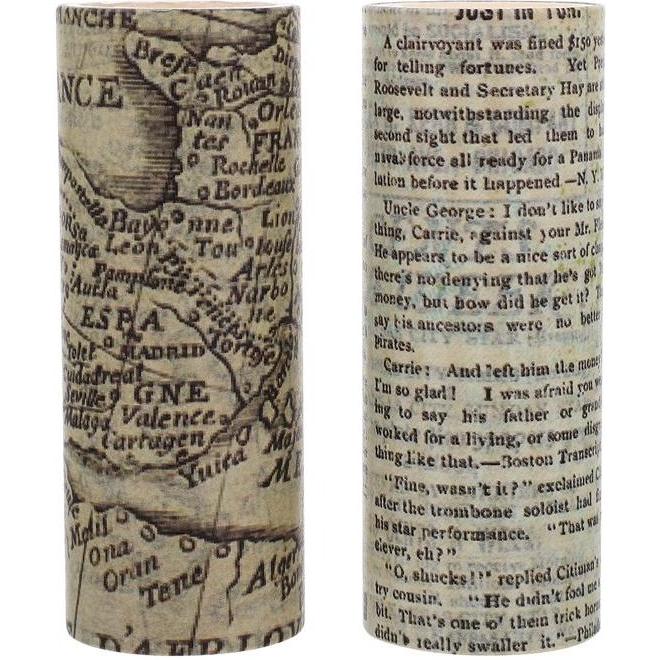 ANCHE
Brest
Caen
Rouan
NCE
Orle
Nan
tes
FRAN
Rochelle
Bordeaux
Bayonne
Lion
Leon
Tou
louse
Arles
Pamplona
Narbo
ne
ESPA
Tortose
MADRID
GNE
Seville
Valence
Malaga
Cartagen
Yuica
Maj
ME
Melil
Ona
Oran
Tene
Alger
D'AFRIQU
JUST IN FUN.
A clairvoyant was fined $150 ye
for telling fortunes. Yet Pre
Roosevelt and Secretary Hay are a
large, notwithstanding the disp
second sight that led them to h
naval force all ready for a Panama
lution before it happened.—N. Y.
Uncle George: I don't like to s
thing, Carrie, against your Mr. F
He appears to be a nice sort of cha
there's no denying that he's got
money, but how did he get it? T
say his ancestors were no better
pirates.
Carrie: And left him the money
I'm so glad! I was afraid you w
ing to say his father or grand
worked for a living, or some disgr
thing like that.—Boston Transcrip
"Fine, wasn't it?" exclaimed C
after the trombone soloist had fi
his star performance. "That was
clever, eh?"
"O, shucks!" replied Citiman's
try cousin. "He didn't fool me
bit. That's one o' them trick horn
didn't really swaller it."—Philad